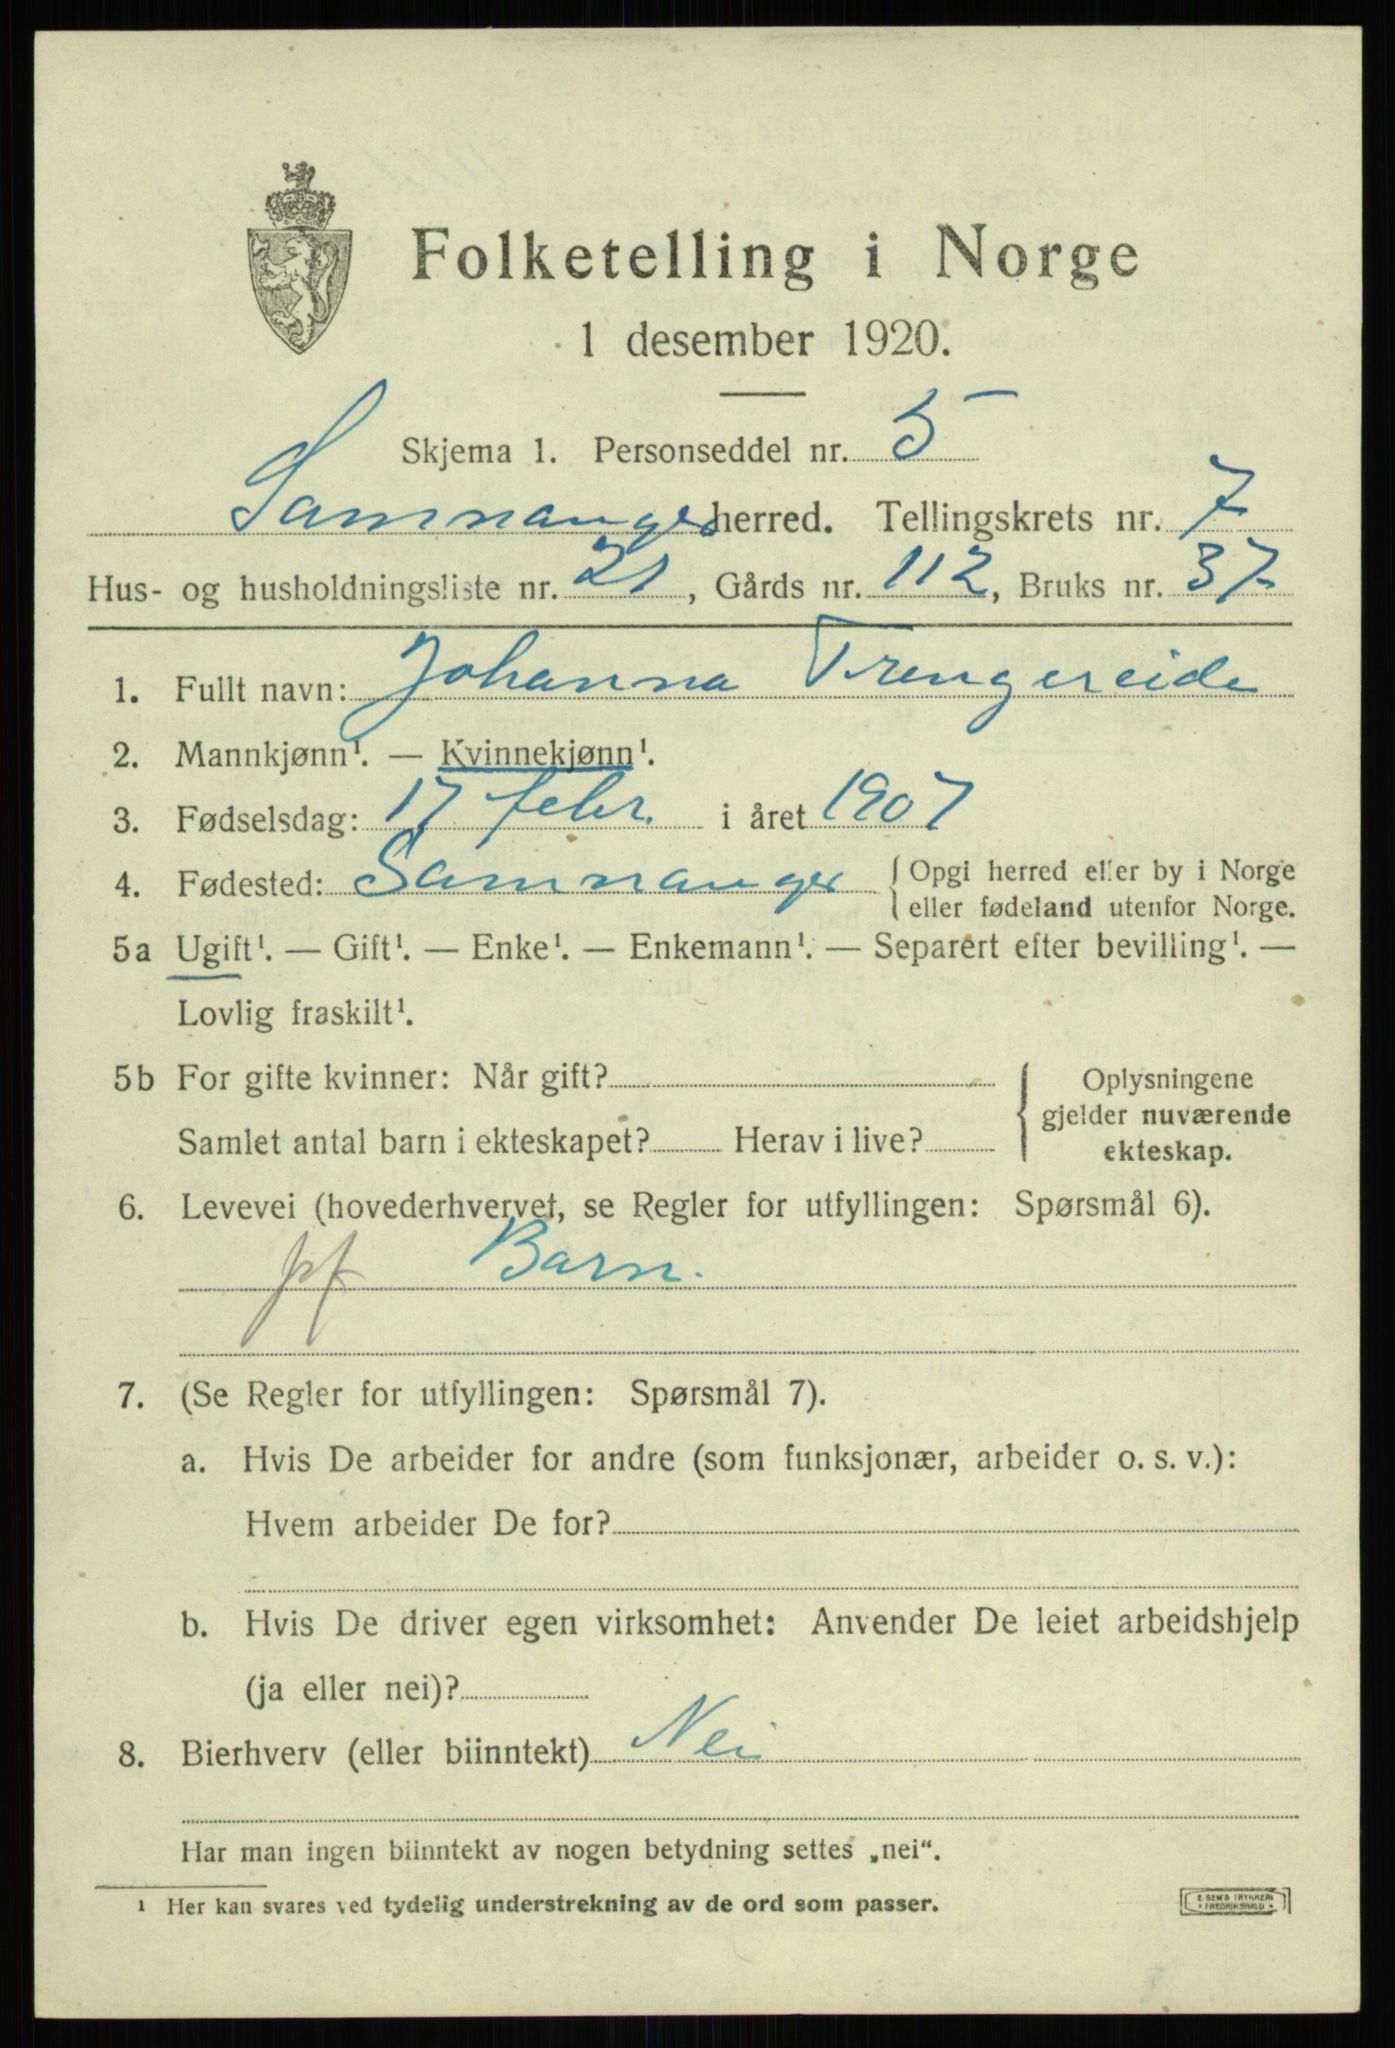 Folketelling i Norge
1 desember 1920.
Skjema 1. Personseddel nr. 5
Samnanger herred. Tellingskrets nr. 7
Hus- og husholdningsliste nr. 21, Gårds nr. 112, Bruks nr. 37
1. Fullt navn: Johanna Trengereide
2. Mannkjønn¹. — Kvinnekjønn¹.
3. Fødselsdag: 17 febr. i året 1907
4. Fødested: Samnanger { Opgi herred eller by i Norge
eller fødeland utenfor Norge.
5a Ugift¹. — Gift¹. — Enke¹. — Enkemann¹. — Separert efter bevilling¹. —
Lovlig fraskilt¹.
5b For gifte kvinner: Når gift?
Samlet antal barn i ekteskapet? Herav i live?
{ Oplysningene
gjelder nuværende
ekteskap.
6. Levevei (hovederhvervet, se Regler for utfyllingen: Spørsmål 6).
pf Barn.
7. (Se Regler for utfyllingen: Spørsmål 7).
a. Hvis De arbeider for andre (som funksjonær, arbeider o. s. v.):
Hvem arbeider De for?
b. Hvis De driver egen virksomhet: Anvender De leiet arbeidshjelp
(ja eller nei)?
8. Bierhverv (eller biinntekt) Nei
Har man ingen biinntekt av nogen betydning settes „nei“.
¹ Her kan svares ved tydelig understrekning av de ord som passer.
E. SEM'S TRYKKERI
FREDRIKSHALD